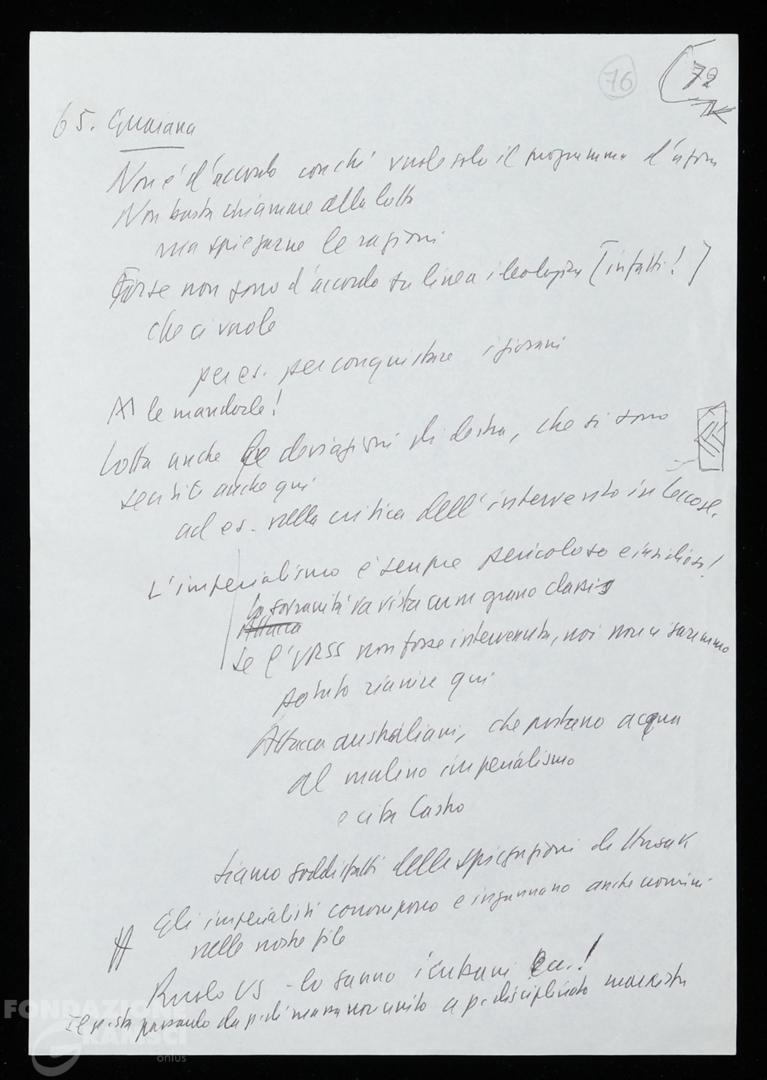 76
72
65. Guaiana
Non è d'accordo con chi vuole solo il programma d'azione
Non basta chiamare alla lotta
ma spiegarne le ragioni
Forse non sono d'accordo su linea ideologica [infatti!]
che ci vuole
per es. per conquistare i giovani
le mandorle!
Lotta anche deviazioni di destra, che si sono
sentite anche qui
ad es. nella critica dell'intervento in Cecosl.
L'imperialismo è sempre pericoloso e insidioso!
la sovranità va vista cum grano classis
Se l'URSS non fosse intervenuta, noi non ci saremmo
potuto riunire qui
Attacca australiani, che portano acqua
al mulino imperialismo
e cita Castro
Siamo soddisfatti delle spiegazioni di Husak
Gli imperialisti corrompono e ingannano anche uomini
nelle nostre file
Ruolo US - lo sanno i cubani ecc.!
Si sta passando da p. di massa non unito a p. disciplinato marxista
FONDAZIONE
GRAMSCI
onlus